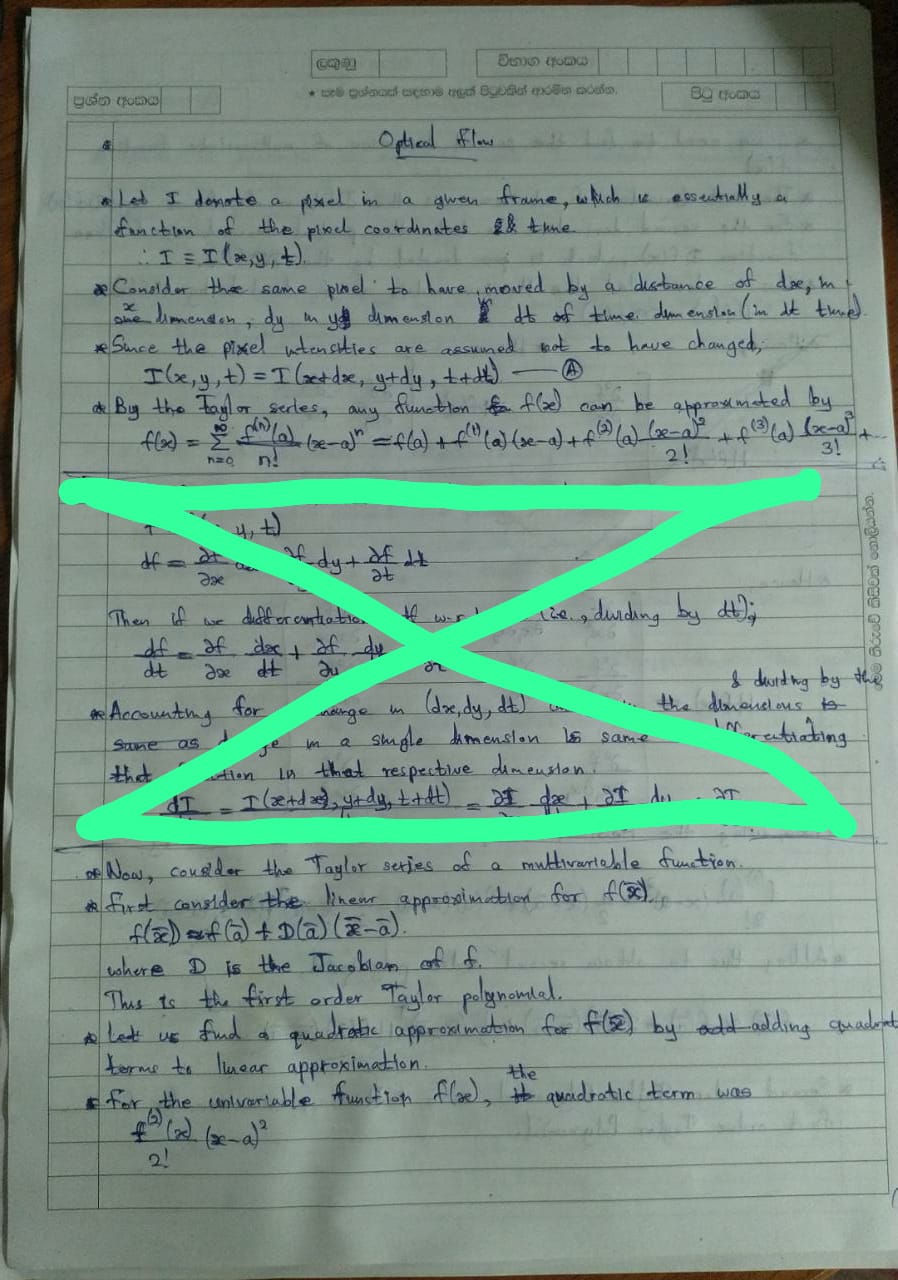 ලකුණු
විභාග අංකය
ප්‍රශ්න අංකය
★ සෑම ප්‍රශ්නයක් සඳහාම අලුත් පිටුවකින් ආරම්භ කරන්න.
පිටු අංකය
Optical flow
* Let I denote a pixel in a given frame, which is essentially a
function of the pixel coordinates && time
∴ I ≡ I(x,y,t)
* Consider the same pixel to have moved by a distance of dx, in
x
one dimension, dy in y dimension & dt of time dimension (in dt time).
* Since the pixel intensities are assumed not to have changed,
I(x,y,t) = I(x+dx, y+dy, t+dt) — Ⓐ
* By the Taylor series, any function f(x) can be approximated by
f(x) = ∞∑n=0 f⁽ⁿ⁾(a)/n! (x-a)ⁿ = f(a) + f⁽¹⁾(a)(x-a) + f⁽²⁾(a) (x-a)²/2! + f⁽³⁾(a) (x-a)³/3! + ...
y, t)
df = ∂f/∂x dy + ∂f/∂t dt
Then if we (i.e., dividing by dt);
df/dt = ∂f/∂x dx/dt + ∂f/∂y dy
& dividing by the
* Accounting for in (dx,dy,dt) the dimensions is
same as in a single dimension is same
that in that respective dimension.
dI = I(x+dx, y+dy, t+dt) = ∂I dx + ∂I dy ∂I
* Now, consider the Taylor series of a multivariable function.
* First consider the linear approximation for f(x̄).
f(x̄) ≈ f(ā) + D(ā)(x̄-ā).
where D is the Jacobian of f.
This is the first order Taylor polynomial.
* Let us find a quadratic approximation for f(x̄) by add adding quadrat
terms to linear approximation.
the
* For the univariable function f(x), quadratic term was
f⁽²⁾(x)/2! (x-a)²